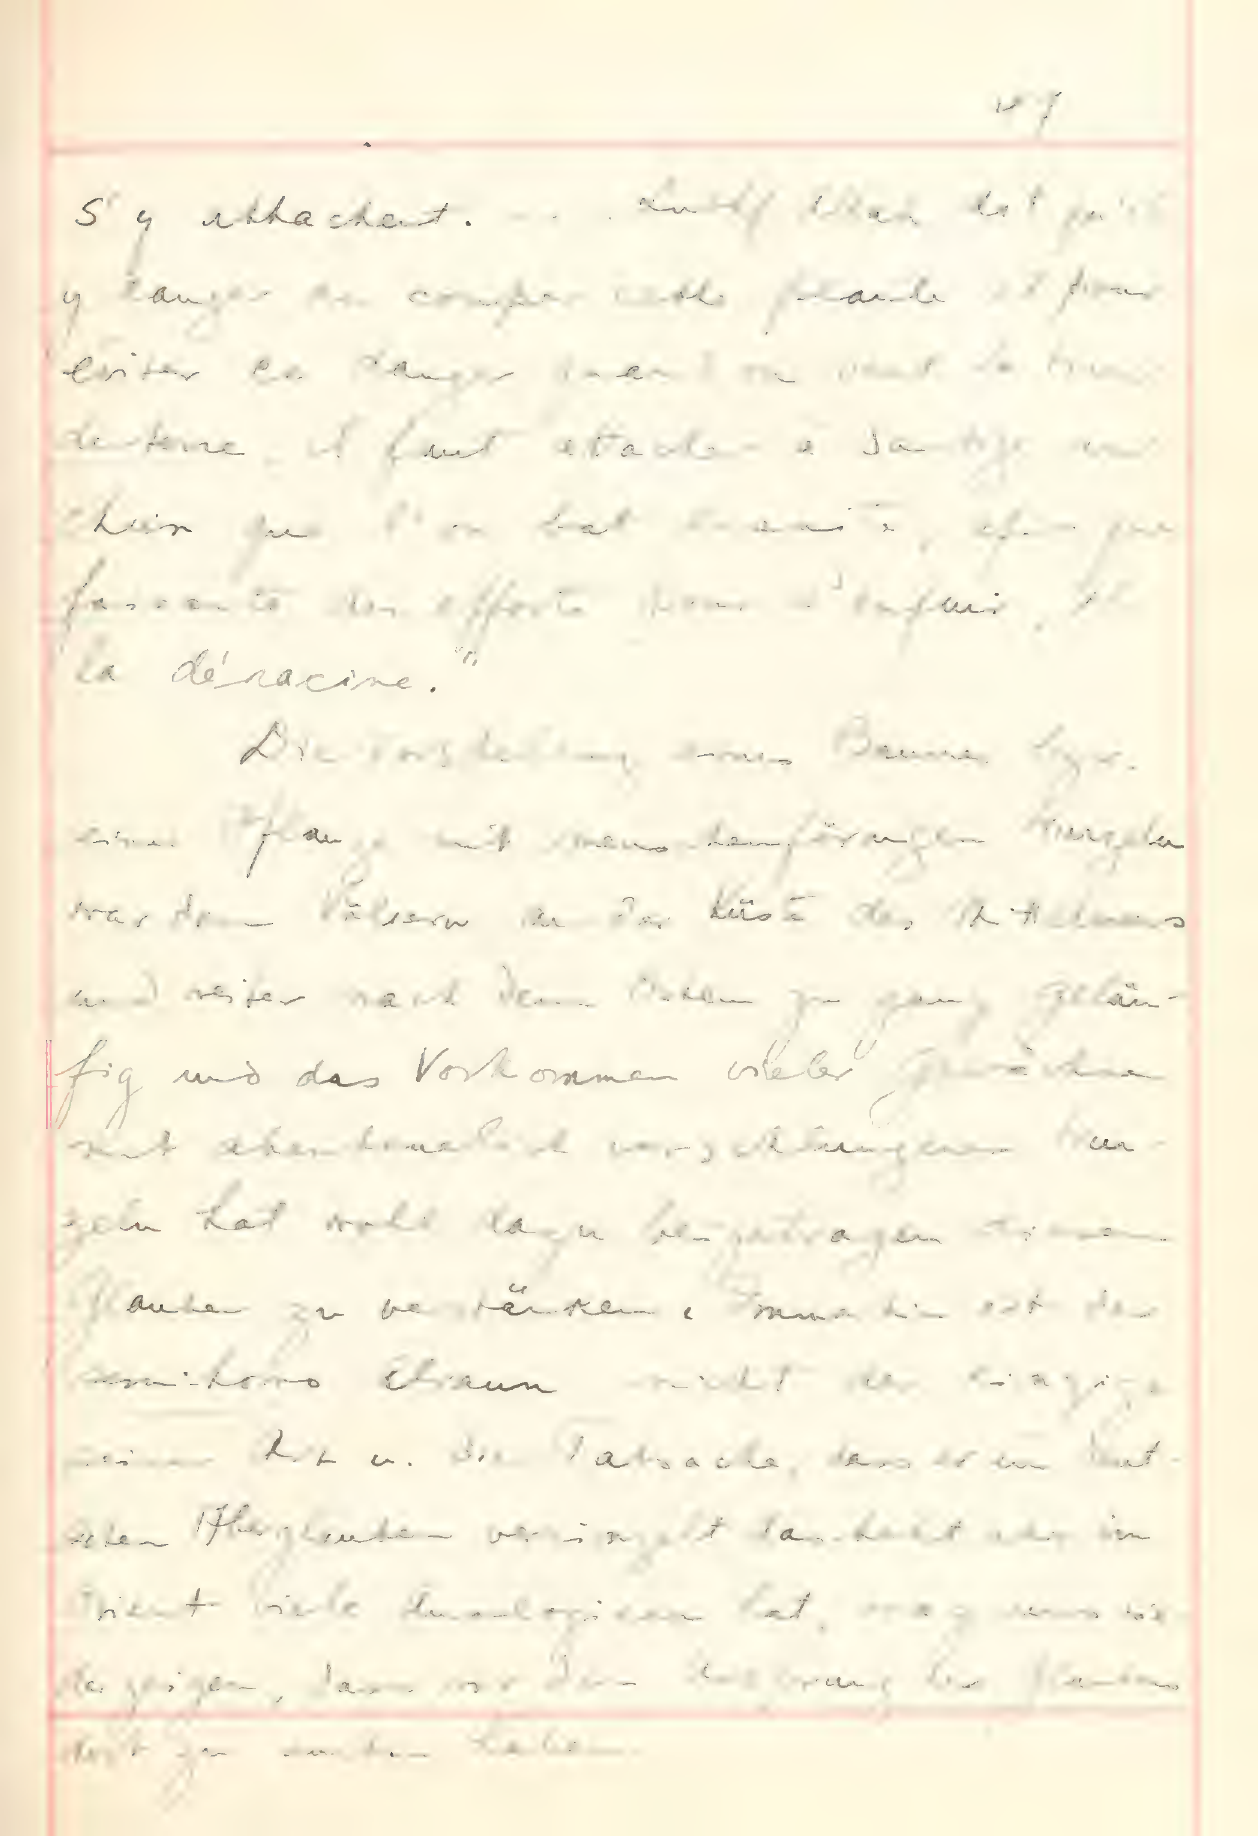 s'y attachent. . . . dit qu'il
y danger de couper cette plante et pour
éviter ce danger quand on veut la
de terre, il faut attacher à sa tige un
chien que l'on bat ensuite, afin que
faisant des efforts pour s'enfuir, il
la déracine."
Die Vorstellung eines Baumes bzw.
einer Pflanze mit menschenförmigen Wurzeln
war den Völkern an der Küste des Mittelmeers
und weiter nach dem Osten zu ganz geläu-
fig und das Vorkommen vieler Gewächse
mit abenteuerlich verschlungenen Wur-
zeln hat wohl dazu beigetragen diesen
Glauben zu verstärken. Immerhin ist der
semihomo Alraun nicht der einzige
seiner Art u. die Tatsache, dass er im deut-
schen Aberglauben vereinzelt dasteht aber im
Orient viele Analogieen hat, mag uns wie-
der zeigen, dass wir den Ursprung des Glaubens
dort zu suchen haben.